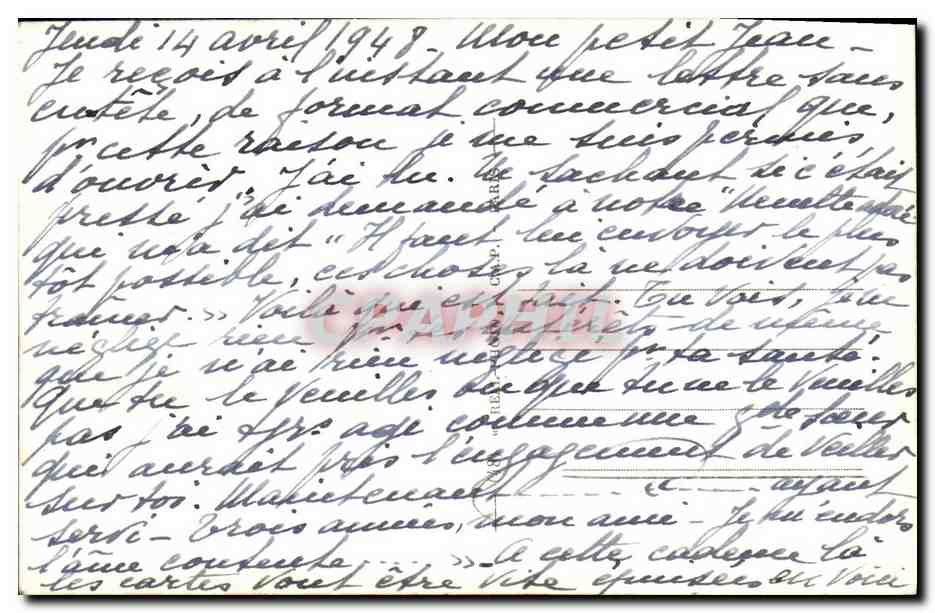 Jeudi 14 avril 1948 - Mon petit Jean -
Je reçois à l'instant une lettre sans
entête, de format commercial que,
pr cette raison je me suis permis
d'ouvrir. J'ai lu. Ne sachant si c'était
pressé j'ai demandé à notre
qui m'a dit "Il faut lui envoyer le plus
tôt possible, ces choses là ne doivent pas
traîner." Voilà qui est fait. Tu vois, je ne
néglige rien pr tes intérêts de même
que je n'ai rien négligé pr ta santé.
Que tu le veuilles ou que tu ne le veuilles
pas j'ai tjrs agi comme une gde sœur
qui aurait pris l'engagement de veiller
sur toi. Maintenant ayant
servi - trois années, mon ami - Je m'endors
l'âme contente .... » A cette cadence là
les cartes vont être vite épuisées ou voici
CPAPHIL